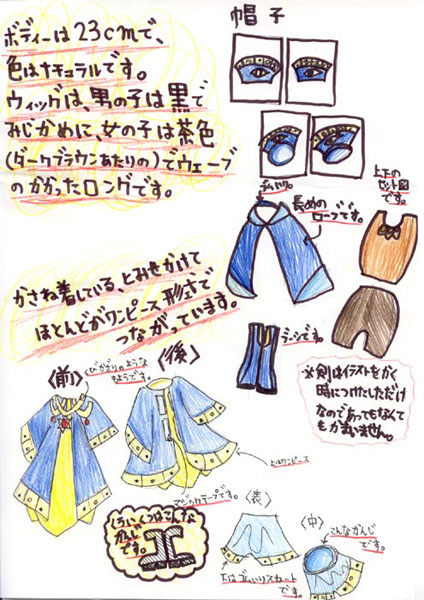 ボディーは23cmで、
色はナチュラルです。
ウィッグは、男の子は黒で
みじかめに、女の子は茶色
(ダークブラウンあたりの)でウェーブ
のかかったロングです。
帽子
長めの
ローブです。
上下の
セット図
です。
かさね着している、とみせかけて
ほとんどがワンピース形式で
つながっています。
ジーンズです。
※剣はイラストをかく
時につけたしただけ
なのであってもなくて
もかまいません。
〈前〉
くびかざりのような
もようです。
〈後〉
上はワンピース
マジックテープです。
〈表〉
〈中〉
こんなかんじ
です。
下はゴム入りスカート
です。
かんじ
です。